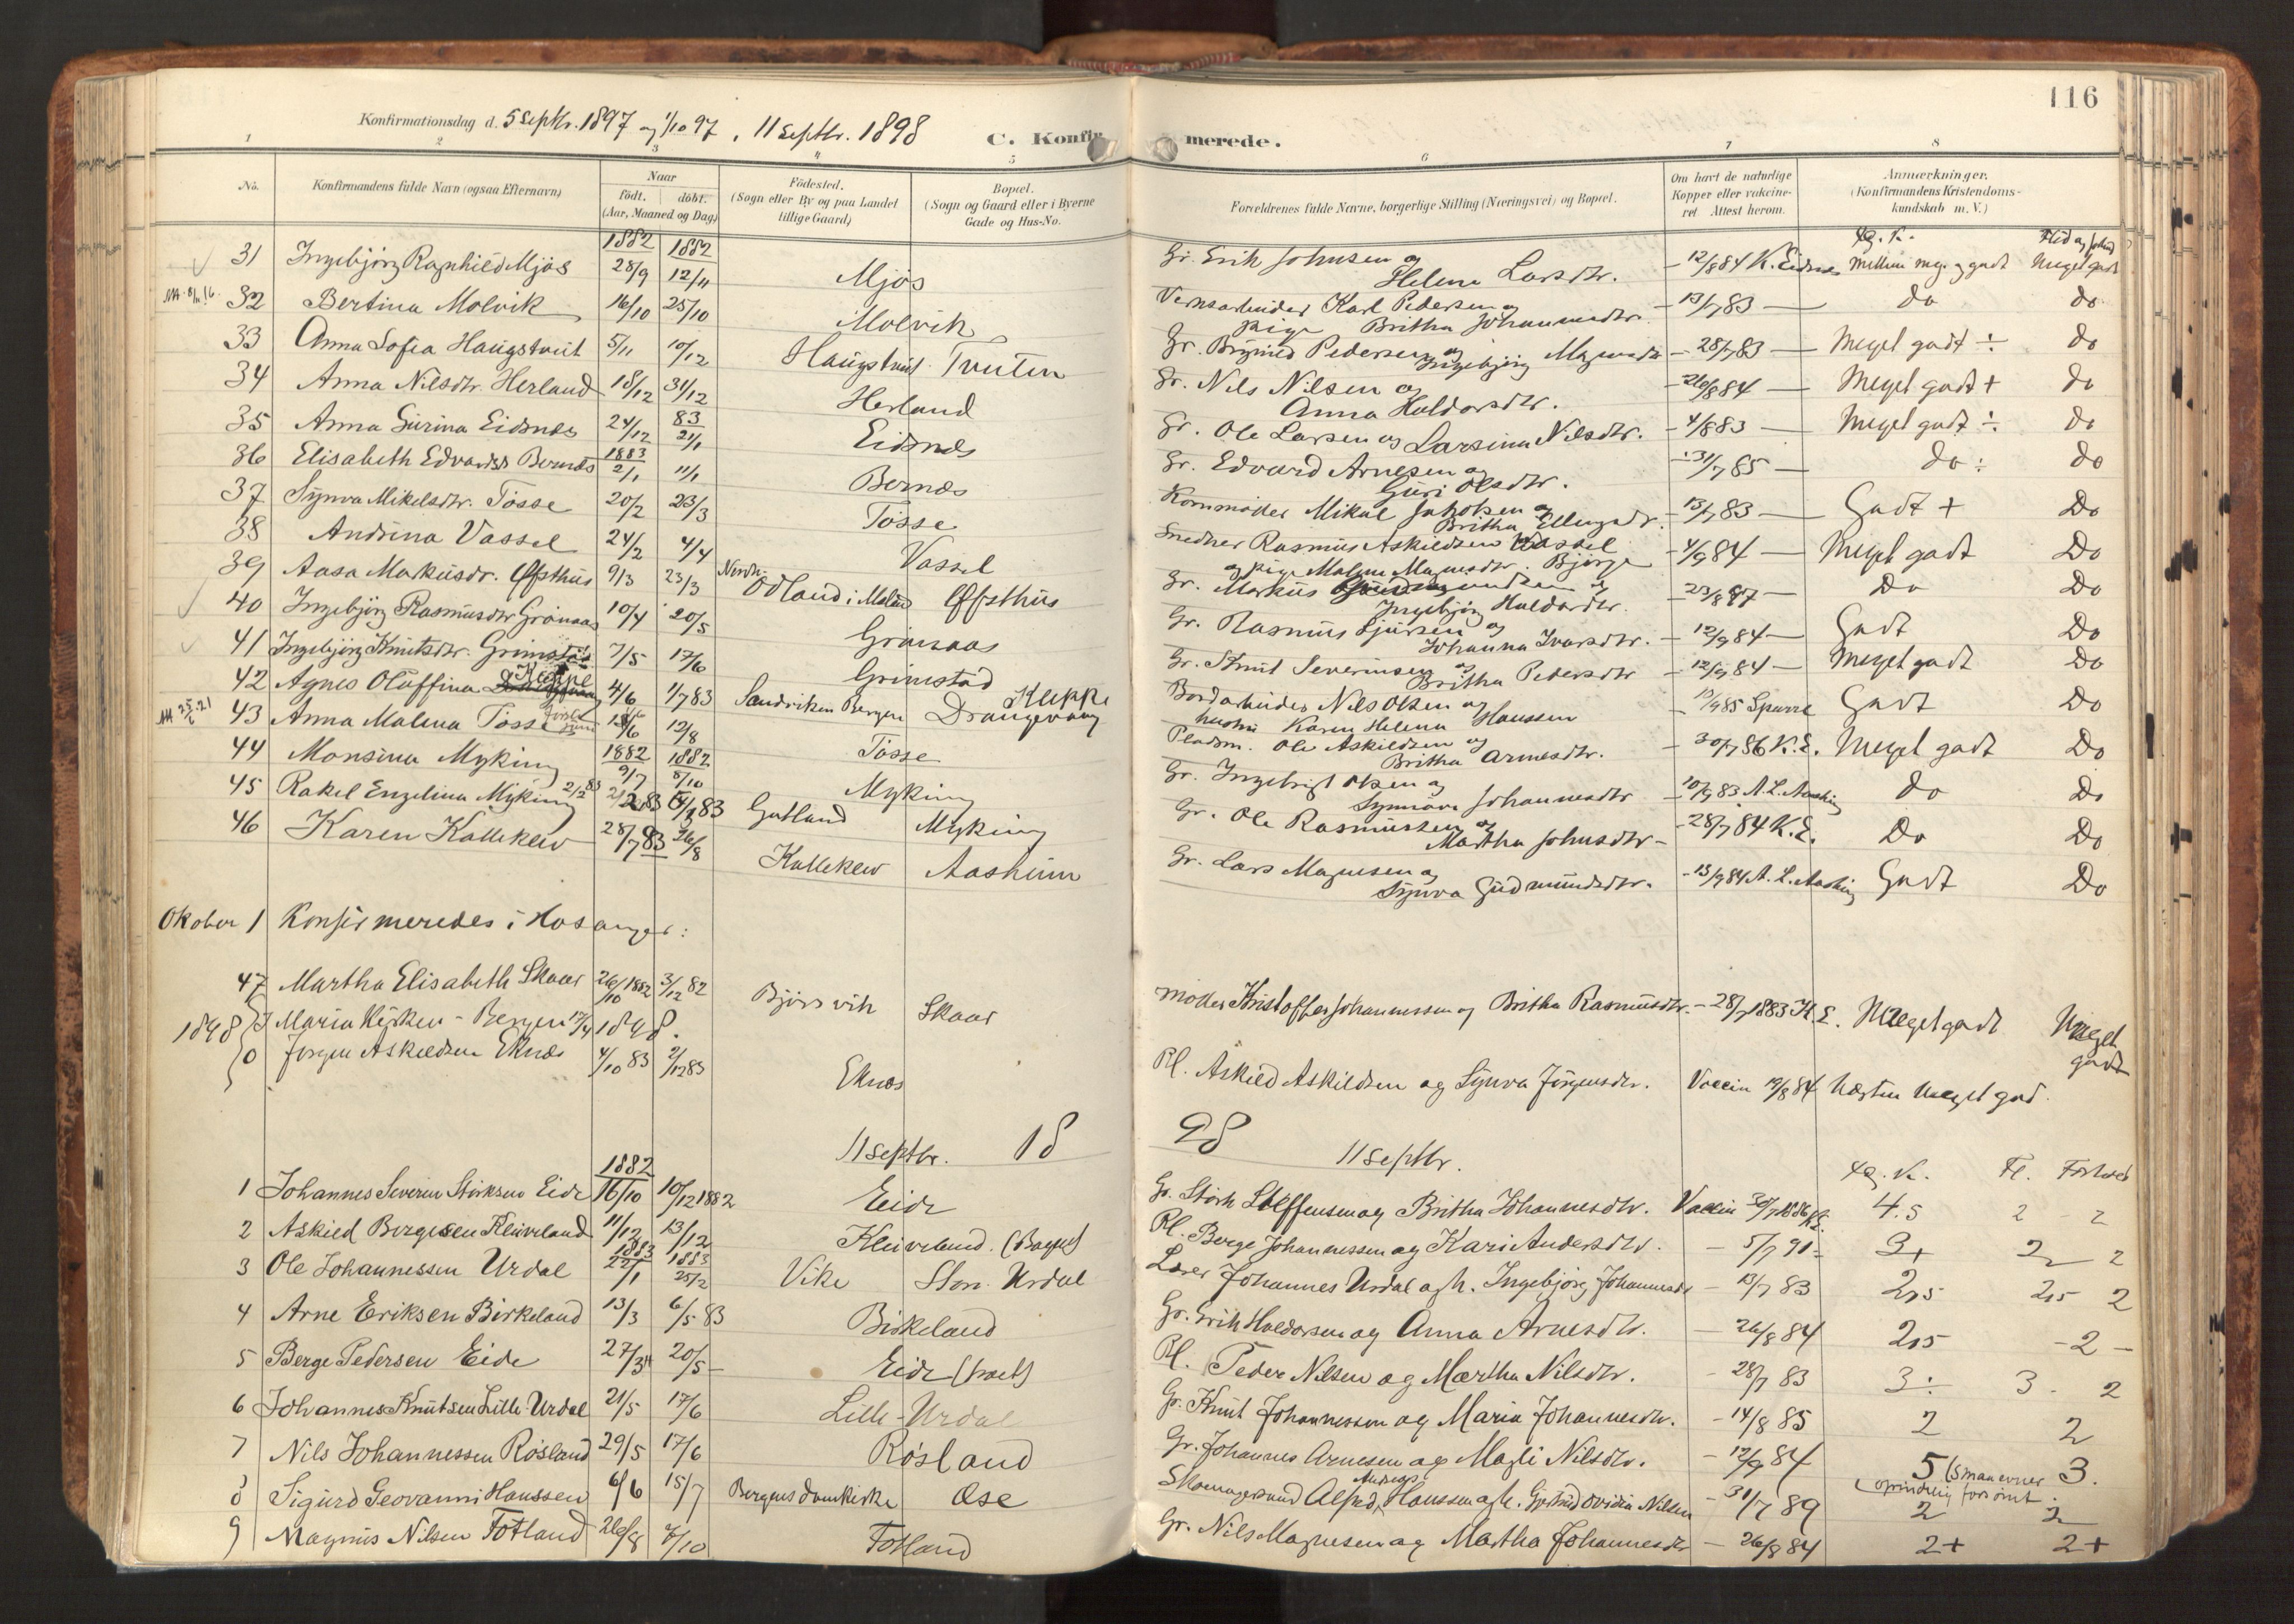 116
Konfirmationsdag d. 5 Septbr. 1897 og 1/10 97, 11 Septbr. 1898
C. Konfirmerede.
1 2 3 4 5 6 7 8
No. Konfirmandens fulde Navn (ogsaa Efternavn) Naar født. døbt. (Aar, Maaned og Dag) Fødested. (Sogn eller By og paa Landet tillige Gaard) Bopæl. (Sogn og Gaard eller i Byerne Gade og Hus-No. Forældrenes fulde Navne, borgerlige Stilling (Næringsvei) og Bopæl. Om havt de naturlige Kopper eller vakcineret Attest herom. Anmærkninger. (Konfirmandens Kristendomskundskab m. V.)
1882 1882
31 Ingebjørg Ragnhild Mjøs 28/9 12/11 Mjøs Gr. Erik Johnsen og Helena Larsdtr. - 12/8 84 K. Eidsnes Mellem meg. og godt Meget godt
32 Bertina Molvik 16/10 25/10 Molvik Karl Pedersen og pige Britha Johannesdtr. - 13/7 83 — do do
33 Anna Sofia Haugstveit 5/11 10/12 Haugstveit Tveiten Gr. Brynild Pedersen og Ingebjørg Magnesdtr - 28/7 83 — Meget godt ÷ do
34 Anna Nilsdtr. Herland 18/12 31/12 Herland Gr. Nils Nilsen og Anna Haldorsdtr. - 26/8 84 — Meget godt + do
35 Anna Surina Eidsnes 24/12 83 21/1 Eidsnes Gr. Ole Larsen og Larsina Nilsdtr. - 4/8 83 — Meget godt ÷ do
36 Elisabeth Edvardsd. Bernæs 1883 2/1 11/1 Bernæs Gr. Edvard Arnesen og Guri Olsdtr. - 31/7 85 — do ÷ do
37 Synva Mikelsdtr. Tosse 20/2 23/3 Tosse Mikal og Britha Ellingsdtr. - 13/7 83 — Godt + Do
38 Andrina Vassel 24/2 4/4 Vassel Snedker Rasmus Askildsen Vassel og pige Malene Magnesdtr. Bjørge - 4/9 84 — Meget godt Do
39 Aasa Markusdr. Øfsthus 9/3 23/3 Nordr- Odland i Øfsthus Gr. Markus og Ingebjørg Haldorsdtr. - 23/8 87 — Do Do
40 Ingebjørg Rasmusdtr Grønaas 10/4 20/5 Grønaas Gr. Rasmus Sjursen og Johanna Ivarsdtr. - 12/9 84 — Godt Do
41 Ingebjørg Knutsdtr. Grimstad 7/5 17/6 Grimstad Gr. Knut Severinsen og Britha Pedersdtr - 12/9 84 — Meget godt Do
42 Agnes Oluffina Kleppe 4/6 1/7 83 Sandviken Bergen Kleppe Drangevaag Bordarbeider Nils Olsen og hustru Karen Helena Hanssen - 13/9 85 Sparre Godt Do
43 Anna Malena Tosse 18/6 12/8 Tosse Pladsm. Ole Askildsen og Britha Arnesdtr. - 30/7 86 K. E. Meget godt Do
44 Monsina Myking 1882 9/7 1882 8/10 Myking Gr. Ingebrigt Olsen og Synnøva Johannesdtr - 10/9 83 A. L. do Do
45 Rakel Engelina Myking 2/2 83 Gutland Myking Gr. Ole Rasmussen og Martha Johnsdtr - 28/7 84 K. E. Do Do
46 Karen Kallekleiv 28/7 83 26/8 Kallekleiv Aasheim Gr. Lars Magnesen og Synva Gudmundsdtr. - 13/9 84 A. L. Godt Do
Oktober 1 Konfirmeredes i Hosanger:
47 Martha Elisabeth Skaar 26/10 1882 3/12 82 Bjørsvik Skaar Møller Kristoffer Johannessen og Britha Rasmusdtr. - 28/7 1883 K. E. Meget godt Meget godt
1898 Maria Kirken - Bergen 17/4 1898.
0 Jørgen Askildsen Eknæs 4/10 83 2/12 83 Eknæs Pl. Askild Askildsen og Synva Jørgensdtr. Vaccin 19/8 84 Næsten meget god.
11 Septbr. 18 98 11 Septbr.
Fl. Forhold
1882
1 Johannes Severin Størksen Eide 16/10 10/12 1882 Eide Gr. Størk Steffensen og Britha Johannesdtr. Vaccin 30/7 1886 K.E. 4.5 2 - 2
2 Askild Bergesen Kleiveland 11/12 13/12 Kleiveland. Pl. Berge Johannessen og Kari Andersdtr. - 5/7 91 - 3+ 2 2
3 Ole Johannessen Urdal 1883 22/1 1883 25/2 Vike Stor-Urdal Lærer Johannes Urdal og h. Ingebjørg Johannesdr - 13/7 83 2,5 2,5 2
4 Arne Eriksen Birkeland 13/3 6/5 83 Birkeland Gr. Erik Haldorsen og Anna Arnesdtr. - 26/8 84 2,5 - 2 -
5 Berge Pedersen Eide 27/3 20/5 Eide Pl. Peder Nilsen og Martha Nilsdtr. - 28/7 83 3 ÷ 3 - 2
6 Johannes Knutsen Lille-Urdal 21/5 17/6 Lille-Urdal Gr. Knut Johannessen og Maria Johannesdtr. - 14/8 85 2 2
7 Nils Johannessen Røsland 29/5 17/6 Røsland Gr. Johannes Arnesen og Magli Nilsdtr. - 12/9 84 5 (Smaa evner oprindelig forsømt. 3.
8 Sigurd Geovanni Hanssen 6/6 15/7 Bergens Domkirke Ose Skomagersvend Alfred Hanssen og h. Gjertrud Ovidia Nilsen - 31/7 89 2 2
9 Magnus Nilsen Fotland 26/8 7/10 Fotland Gr. Nils Magnesen og Martha Johannesdtr - 26/8 84 2+ 2+